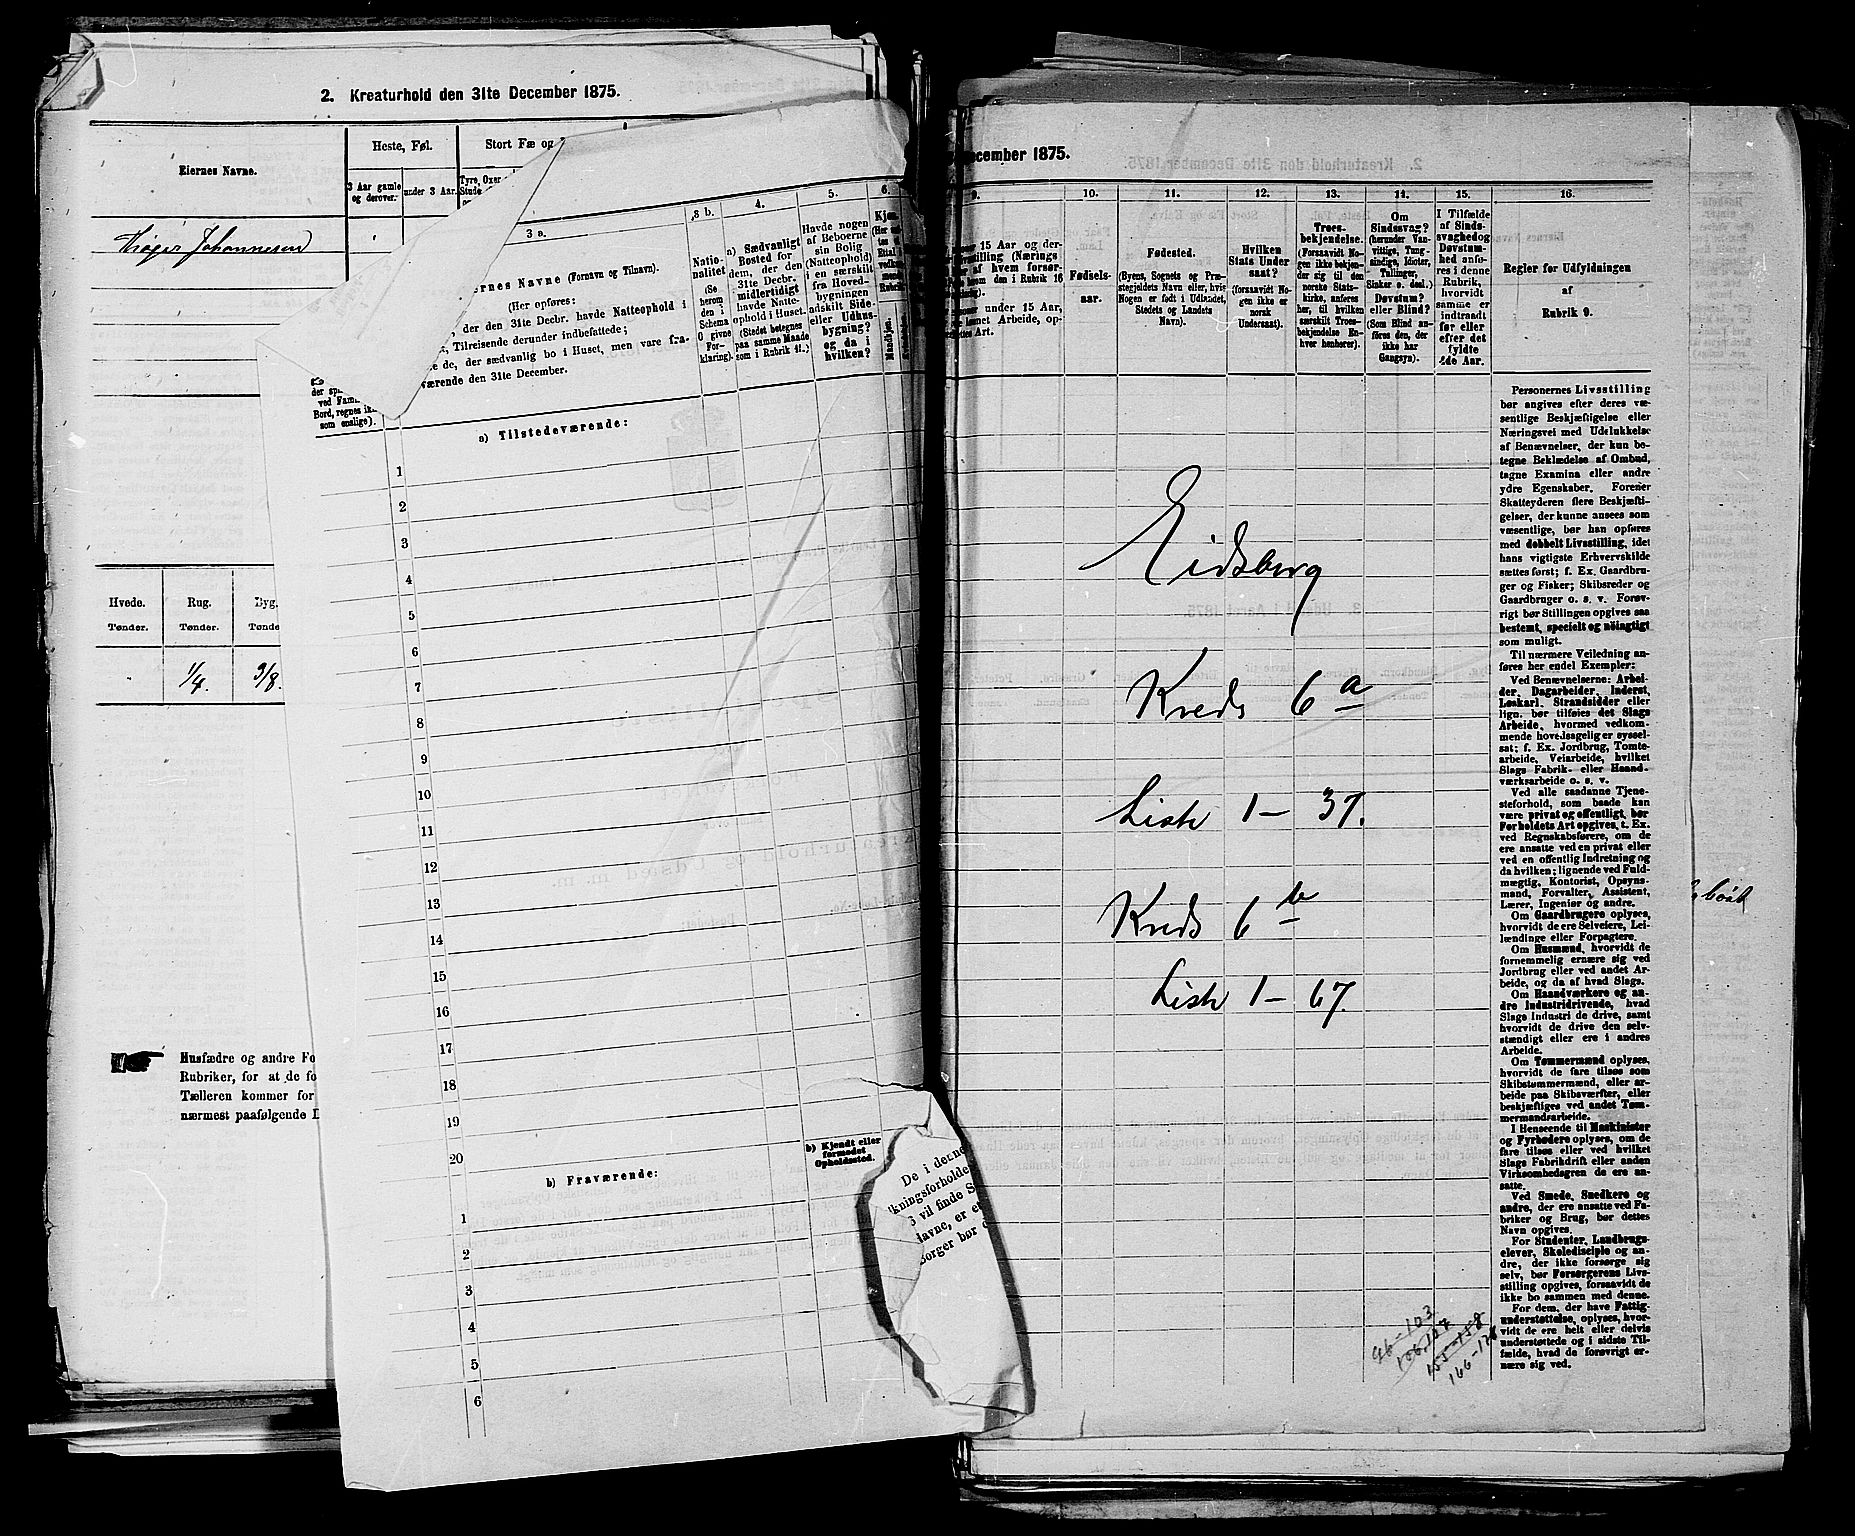 2. Kreaturhold den 31te December 1875.
Eiernes Navne.
Heste, Føl.
Stort Fæ og
3 Aar gamle
og derover.
under 3 Aar.
Johannesen
Hvede.
Rug.
Byg.
Tønder.
Tønder.
Tønde
1/4.
3/8.
Husfædre og andre Fo
Rubriker, for at de fo
Tælleren kommer for
nærmest paafølgende D
3 a.
ernes Navne (Fornavn og Tilnavn).
(Her opføres:
, der den 31te Decbr. havde Natteophold i
t, Tilreisende derunder indbefattede;
e de, der sædvanlig bo i Huset, men vare fra-
værende den 31te December.
der sp
ved Fam
Bord, regnes ik
som enslige).
3 b.
Natio-
nalitet
(Se
herom
den i
Schema
O givne
For-
klaring).
4.
a) Sædvanligt
Bosted for
dem, der den
31te Decbr.
midlertidigt
havde Natte-
ophold i Huset.
(Stedet betegnes
paa samme Maade
som i Rubrik 11.)
5.
Havde nogen
af Beboerne
sin Bolig
(Natteophold)
i en særskilt
fra Hoved-
bygningen
adskilt Side-
eller Udhus-
bygning?
og da i
hvilken?
6.
Kjøn.
Mandkjøn.
a) Tilstedeværende:
1
2
3
4
5
6
7
8
9
10
11
12
13
14
15
16
17
18
19
20
b) Kjendt eller
formodet
Opholdssted.
b) Fraværende:
1
2
3
4
5
6
De i denne
kningsforholde
3 vil finde S
lavne, er e
Borger bør
ecember 1875.
9.
15 Aar og der-
stilling (Nærings
af hvem forsør-
m den i Rubrik 16
under 15 Aar,
lønnet Arbeide, op-
tes Art.
10.
Fødsels-
aar.
11.
Fødested.
(Byens, Sognets og Præ-
stegjeldets Navn eller, hvis
Nogen er født i Udlandet,
Stedets og Landets
Navn).
12.
Hvilken
Stats Under
saat?
(forsaavidt No-
gen ikke er
norsk
Undersaat).
13.
Troes-
bekjendelse.
(Forsaavidt No-
gen ikke bekjen-
der sig til den
norske Stats-
kirke, anføres
her, til hvilken
særskilt Troes-
bekjendelse En-
hver henhører).
14.
Om
Sindssvag?
(herunder Van-
vittige, Tung-
sindige, Idioter,
Tullinger,
Sinker o. desl.)
Døvstum?
eller Blind?
(Som Blind an-
føres den, der
ikke har
Gangsyn).
15.
I Tilfælde
af Sinds-
svaghed og
Døvstum-
hed anfø-
res i denne
Rubrik,
hvorvidt
samme er
indtraadt
før eller
efter det
fyldte
4de Aar.
16.
Regler for Udfyldningen
af
Rubrik 9.
Eidsberg
Kreds 6 a
Liste 1 – 37.
Kreds 6 b
Liste 1 – 67.
Personernes Livsstilling
bør angives efter deres væ-
sentlige Beskjæftigelse eller
Næringsvei med Udelukkelse
af Benævnelser, der kun be-
tegne Beklædelse af Ombud,
tagne Examina eller andre
ydre Egenskaber. Forener
Skatteyderen flere Beskjæfti-
gelser, der kunne ansees som
væsentlige, bør han opføres
med dobbelt Livsstilling, idet
hans vigtigste Erhvervskilde
sættes først; f. Ex. Gaardbru-
ger og Fisker; Skibsreder og
Gaardbruger o. s. v. Forøv-
rigt bør Stillingen opgives saa
bestemt, specielt og nöiagtigt
som muligt.
Til nærmere Veiledning an-
føres her endel Exempler:
Ved Benævnelserne: Arbei-
der, Dagarbeider, Inderst,
Løskarl, Strandsidder eller
lign. bør tilføies det Slags
Arbeide, hvormed vedkom-
mende hovedsagelig er syssel-
sat; f. Ex. Jordbrug, Tomte-
arbeide, Veiarbeide, hvilket
Slags Fabrik- eller Haand-
værksarbeide o. s. v.
Ved alle saadanne Tjene-
steforhold, som baade kan
være privat og offentligt, bør
Forholdets Art opgives, t. Ex.
ved Regnskabsførere, om de
ere ansatte ved en privat eller
ved en offentlig Indretning og
da hvilken; lignende ved Fuld-
mægtig, Kontorist, Opsyns-
mand, Forvalter, Assistent,
Lærer, Ingeniør og andre.
Om Gaardbrugere oplyses,
hvorvidt de ere Selveiere, Lei-
lændinge eller Forpagtere.
Om Husmænd, hvorvidt de
fornemmelig ernære sig ved
Jordbrug eller ved andet Ar-
beide, og da af hvad Slags.
Om Haandværkere og an-
dre Industridrivende, hvad
Slags Industri de drive, samt
hvorvidt de drive den selv-
stændigt eller ere i andres
Arbeide.
Om Tømmermænd oplyses,
hvorvidt de fare tilsøs som
Skibstømmermænd, eller ar-
beide paa Skibsværfter, eller
beskjæftiges ved andet Tøm-
mermandsarbeide.
I Henseende til Maskinister
og Fyrbødere oplyses, om de
fare tilsøs eller ved hvilket
Slags Fabrikdrift eller anden
Virksomhedsgren de ere an-
satte.
Ved Smede, Snedkere og
andre, der ere ansatte ved Fa-
briker og Brug, bør dettes
Navn opgives.
For Studenter, Landbrugs-
elever, Skoledisciple og an-
dre, der ikke forsørge sig
selv, bør Forsørgerens Livs-
stilling opgives, forsaavidt de
ikke bo sammen med denne.
For dem, der have Fattig-
understøttelse, oplyses, hvor-
vidt de ere helt eller delvis
understøttede og i sidste Til-
fælde, hvad de forøvrigt er-
nære sig ved.